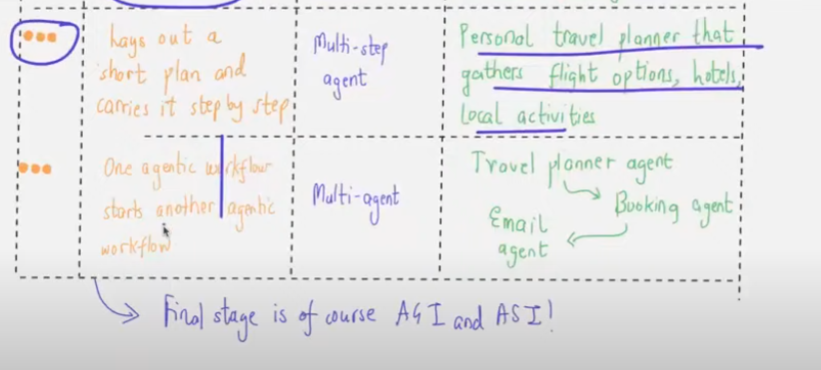 Lays out a
short plan and
carries it step by step
Multi-step
agent
Personal travel planner that
gathers flight options, hotels,
local activities
One agentic workflow
starts another agentic
workflow
Multi-agent
Travel planner agent
Booking agent
Email
agent
Final stage is of course AGI and ASI!